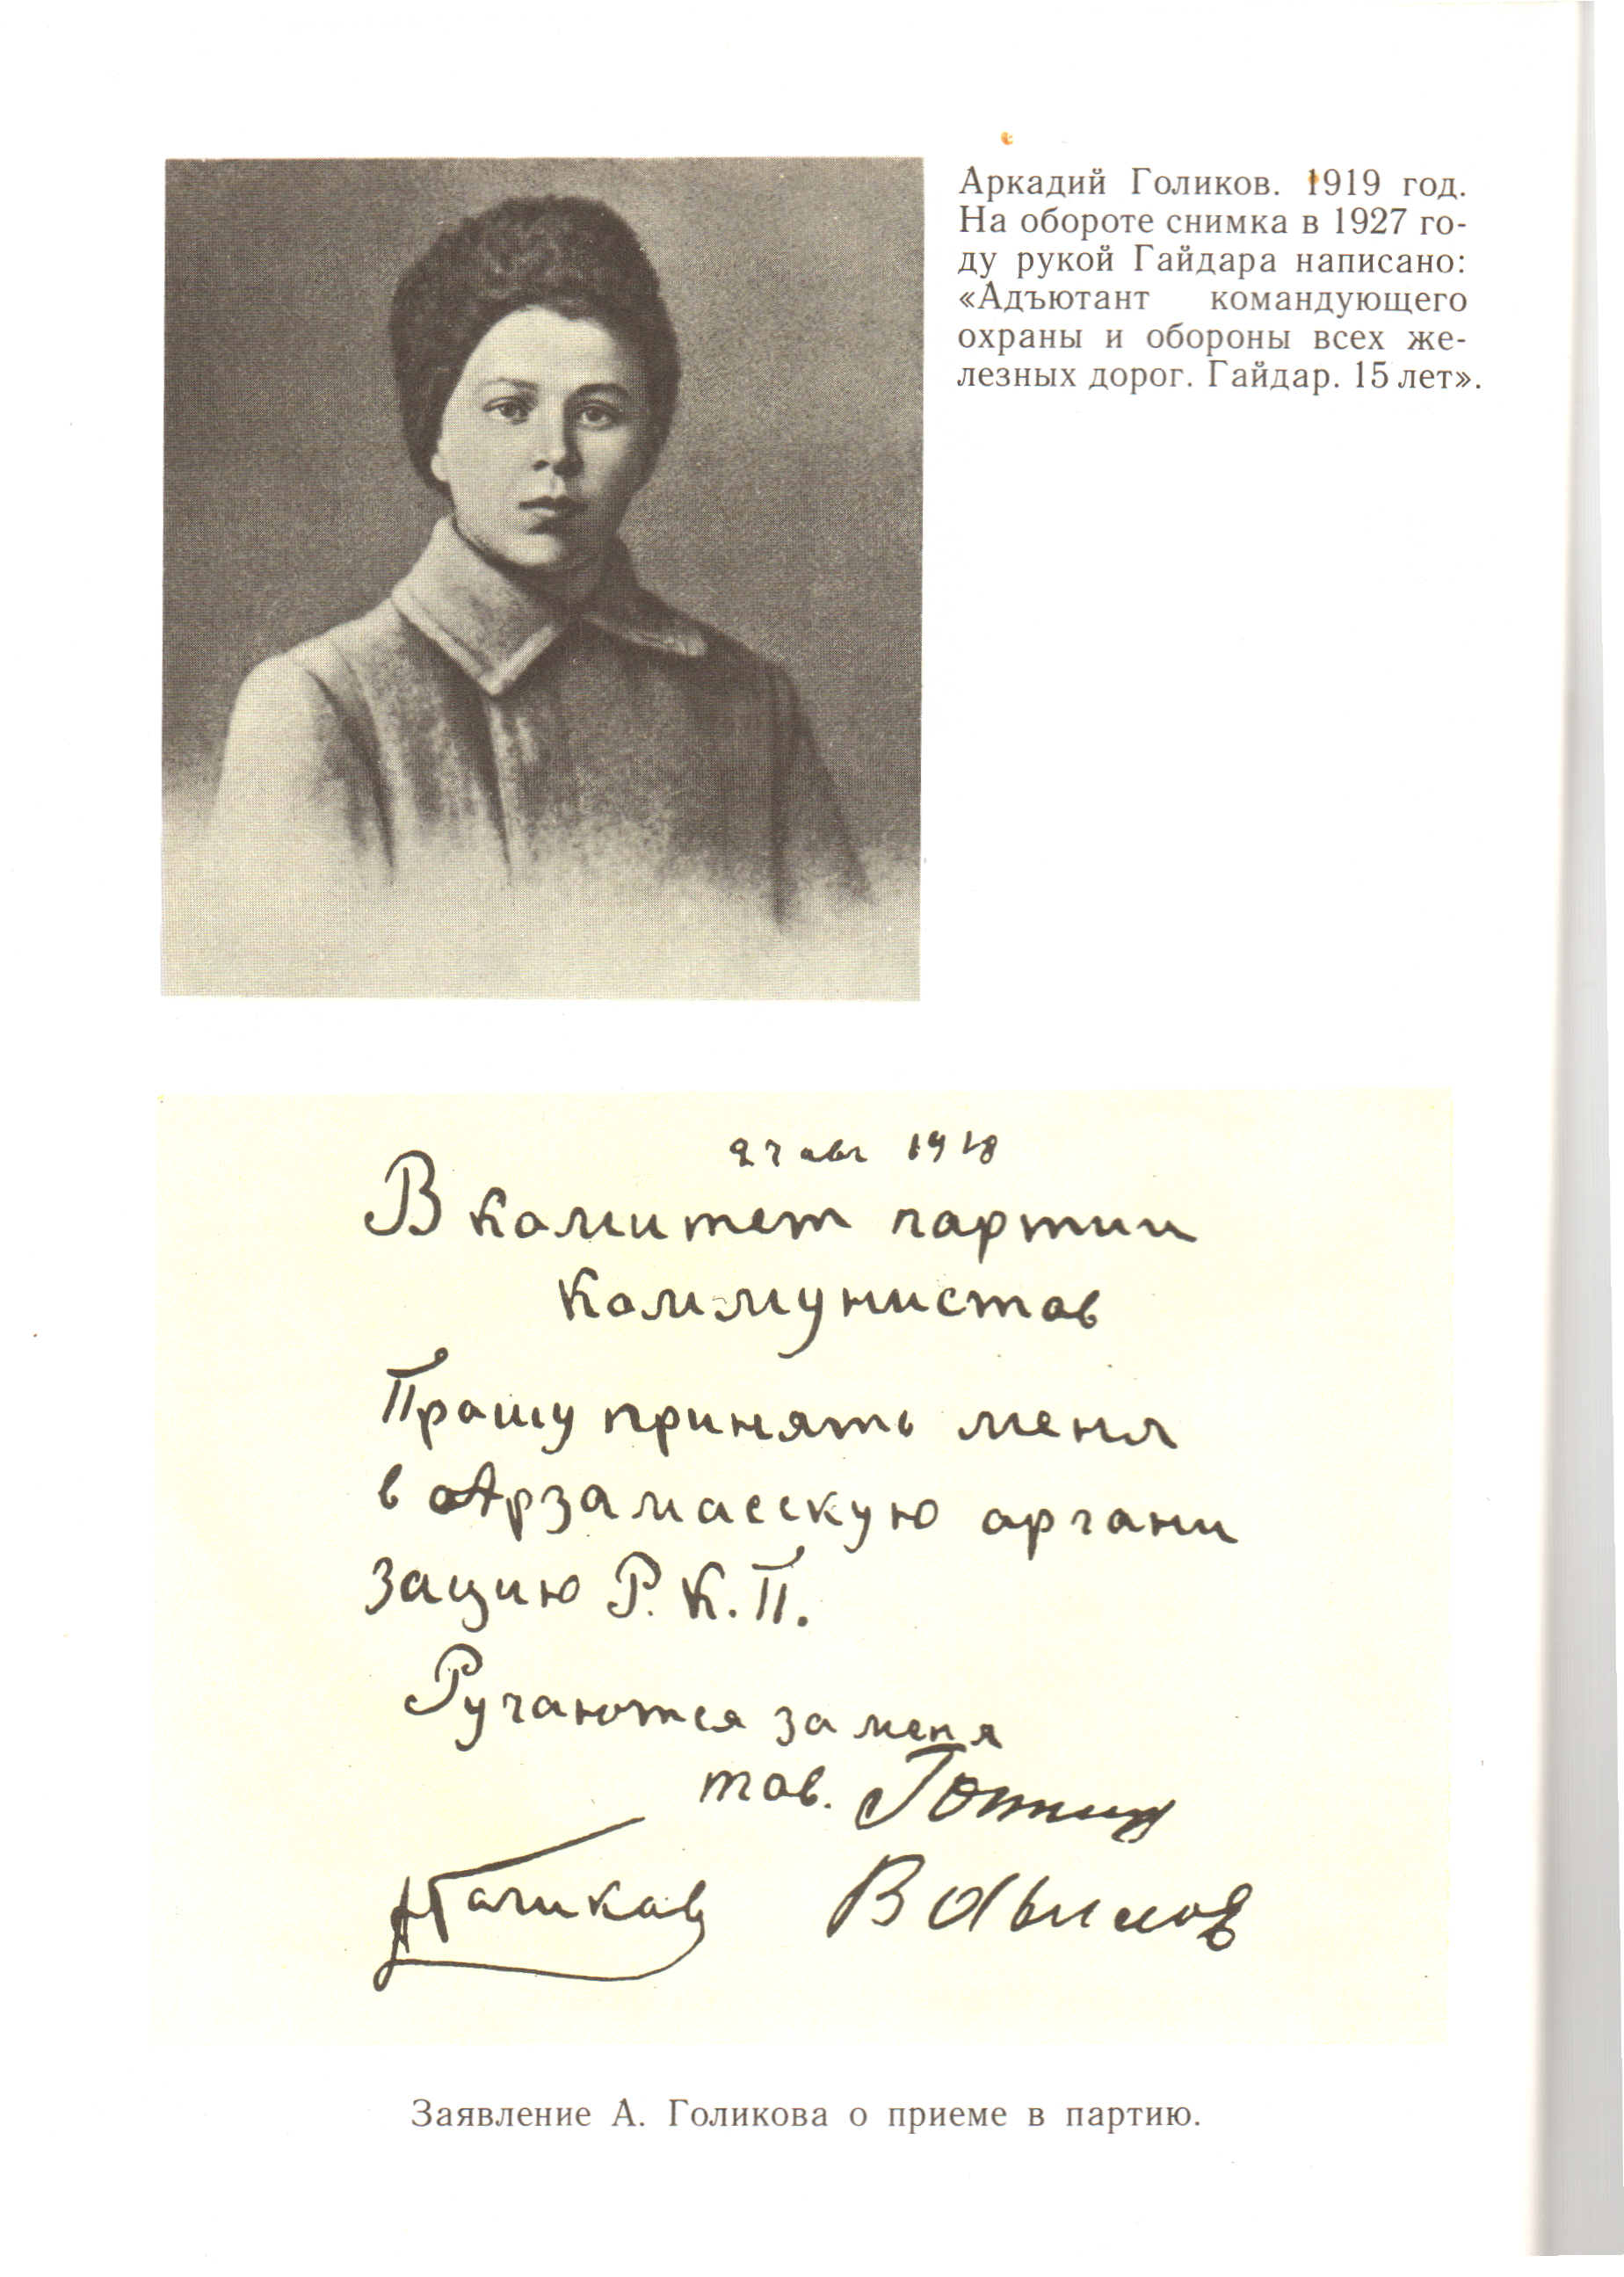 Аркадий Голиков. 1919 год.
На обороте снимка в 1927 го-
ду рукой Гайдара написано:
«Адъютант командующего
охраны и обороны всех же-
лезных дорог. Гайдар. 15 лет».
27 авг 1918
В комитет партии
коммунистов
Прошу принять меня
в Арзамасскую органи
зацию Р.К.П.
Ручаются за меня
тов. Гоппиус
АГоликов Вавилов
Заявление А. Голикова о приеме в партию.